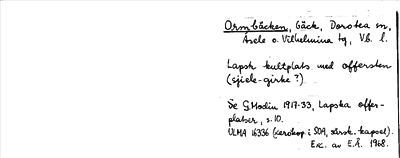 Ormbäcken, bäck, Dorotea sn,
Åsele o. Vilhelmina tg, Vb. l.
Lapsk kultplats med offersten
(sjiele-girke?)
Se G Modin 1917-33, Lapska offer-
platser, s. 10.
ULMA 16336 (xerokop i SOA, särsk. kapsel).
Exc. av E.Å. 1968.